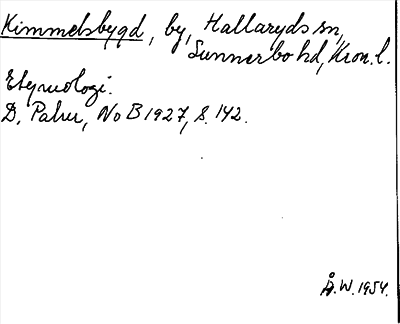 Kimmelsbygd, by, Hallaryds sn,
Sunnerbo hd, Kron. l.
Etymologi.
D. Palm, NoB 1927, S. 142.
Å.W. 1954.